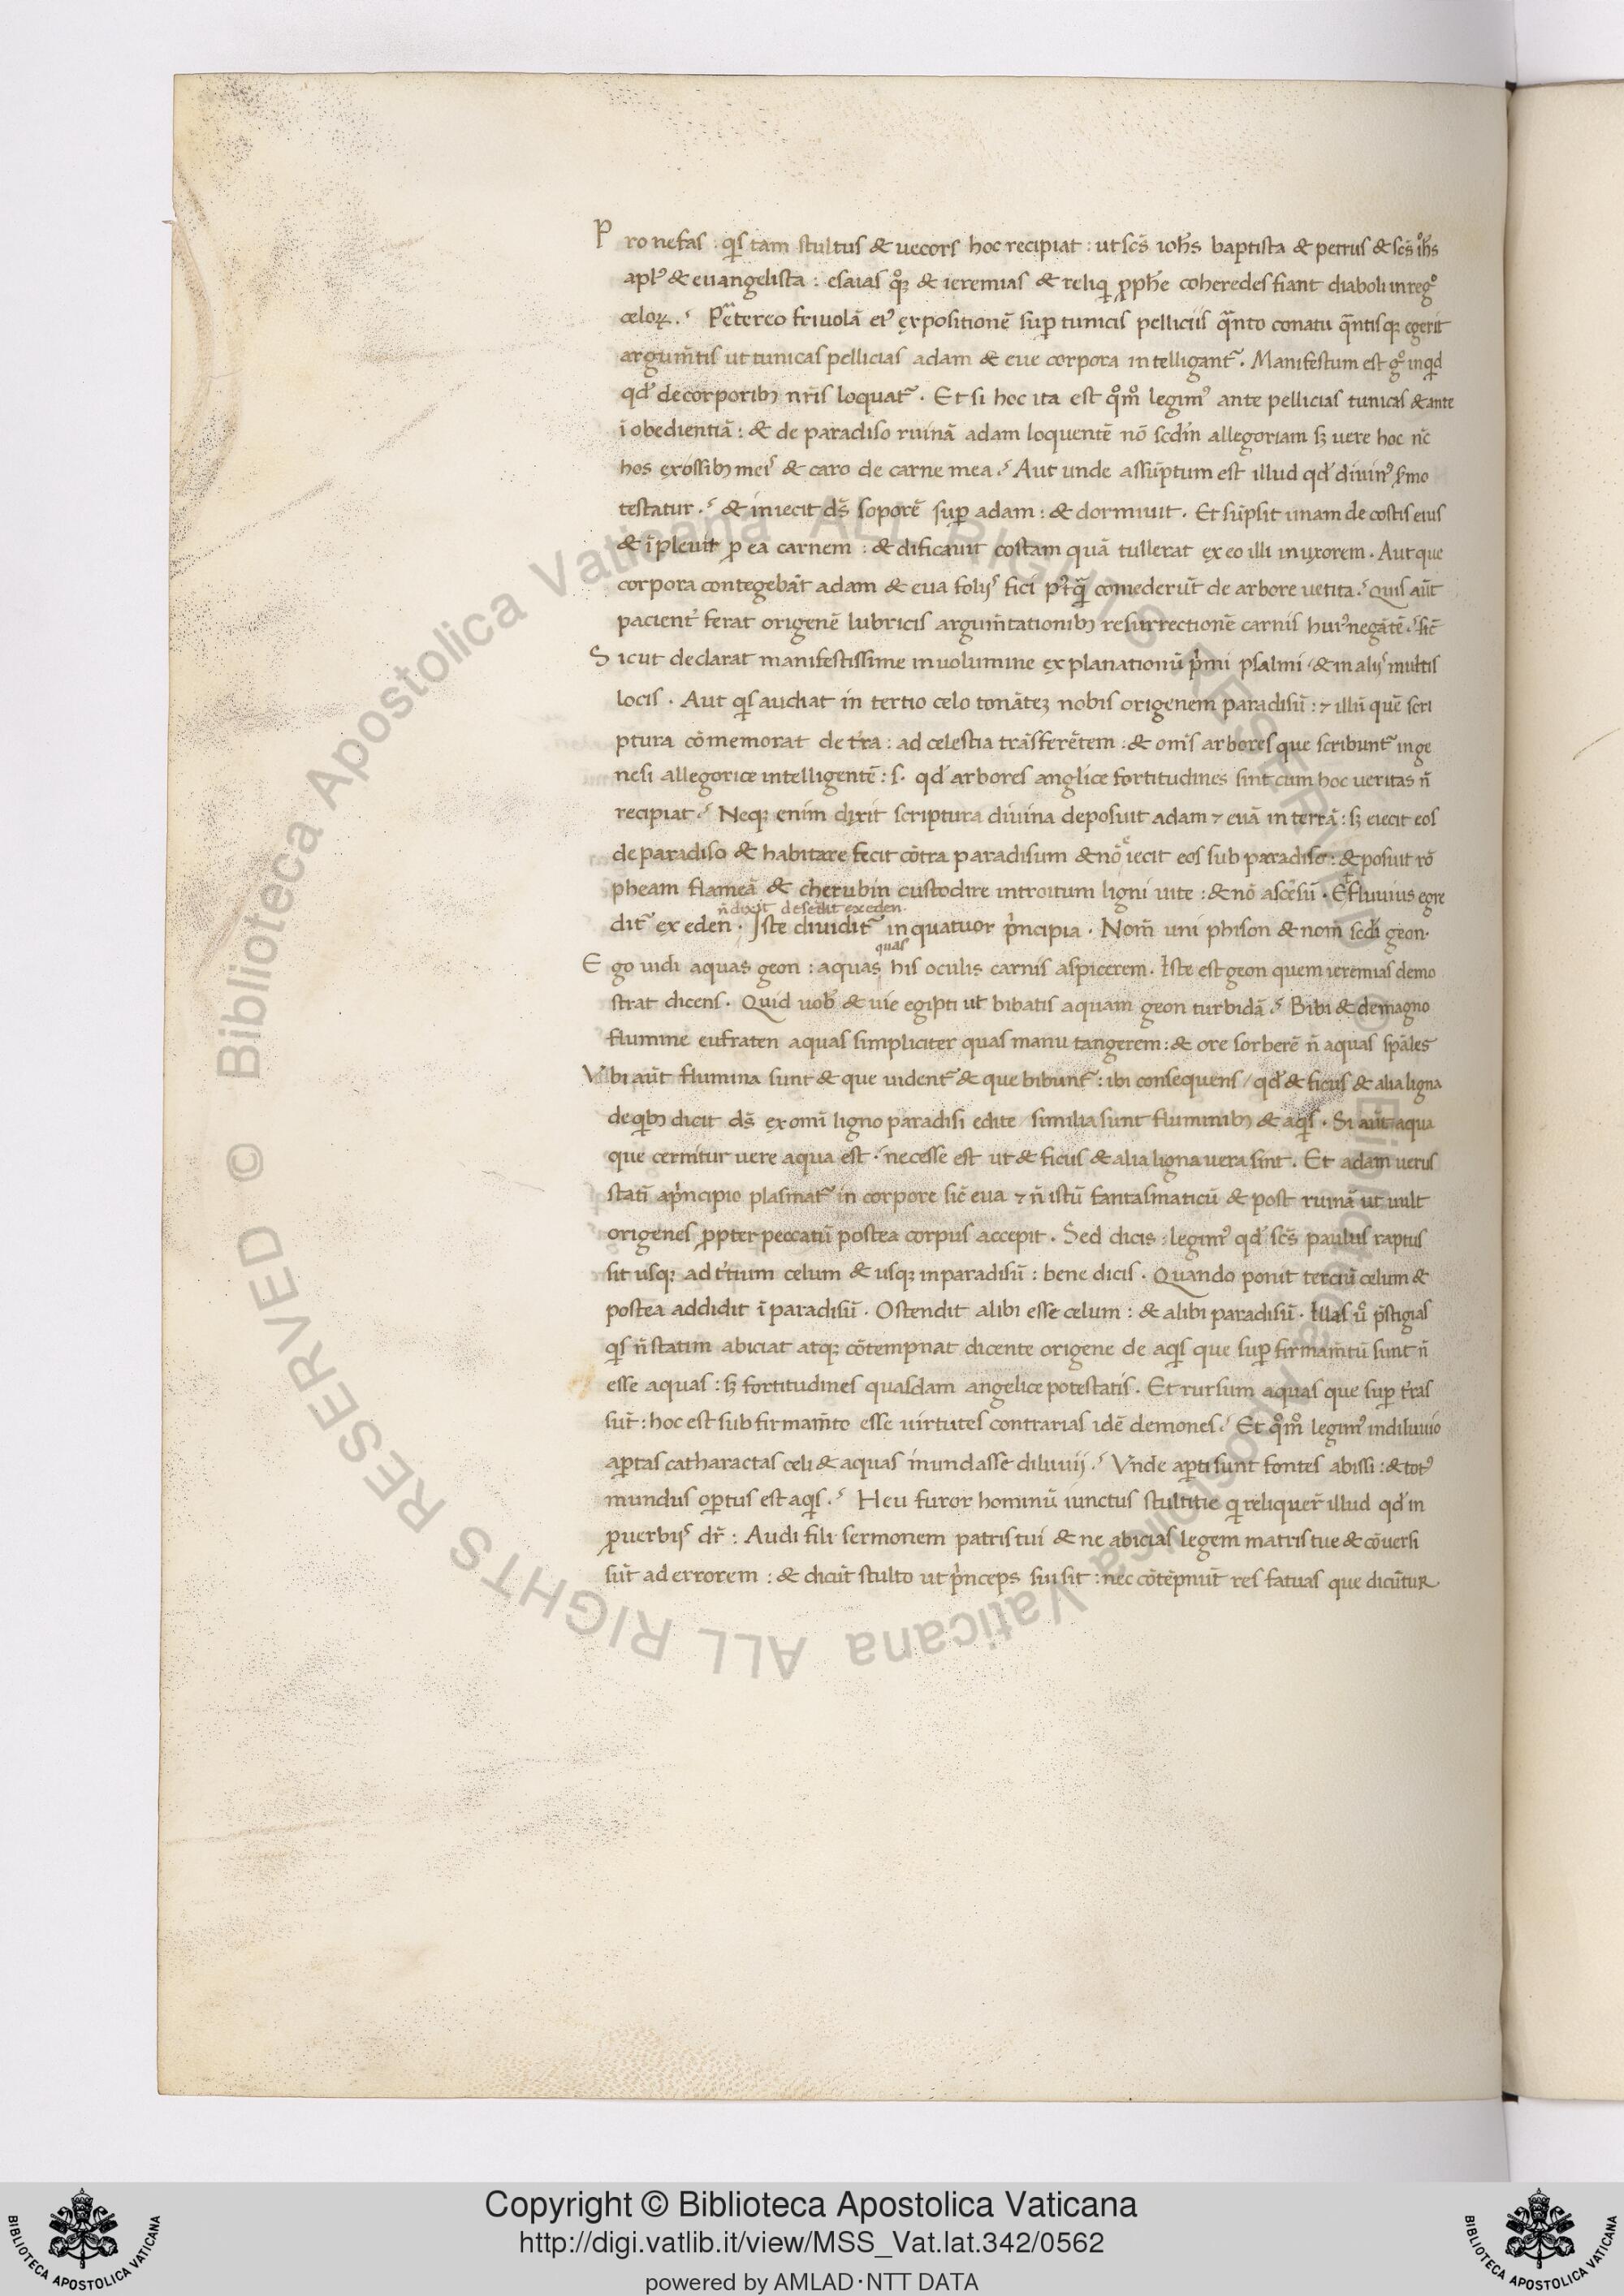 Pro nefas : qͥs tam stultus & uecors hoc recipiat : ut scs̄ ioh̄s baptista & petrus & scs̄ ioh̄s
apl̄s & euangelista : esaias qͦꝫ & ieremias & reliqͥ ꝓph̄e coheredes fiant diaboli in regͦ
celoꝝ. Pͣetereo friuolā eiꝰ expositionē suꝑ tunicis pelliciis qͣnto conatu qͣntisqꝫ egerit
argum̄tis ut tunicas pellicias adam & eue corpora intelligant᷑. Manifestum est gͦ inqͥd
qd̓ de corporibꝫ nr̄is loquat᷑. Et si hoc ita est qͦm̊ legimꝰ ante pellicias tunicas & ante
īobedientiā : & de paradiso ruinā adam loquentē nō scd̄m allegoriam sꝫ uere hoc nc̄
hos ex ossibꝫ meis & caro de carne mea. Aut unde assūptum est illud qd̓ diuinꝰ ẜmo
testatur. & iniecit ds̄ soporē suꝑ adam : & dormiuit. Et sūpsit unam de costis eius
& īpleuit ꝓ ea carnem : & dificauit costam quā tullerat ex eo illi in uxorem. Aut que
corpora contegebāt adam & eua folijs fici pꝰtqͣ comederūt de arbore uetita. Quis aūt
pacient̓ ferat origenē lubricis argum̄tationibꝫ resurrectionē carnis huiꝰ negātē. sic̄
Sicut declarat manifestissime in uolumine explanationū pͥmi psalmi / & in alijs multis
locis. Aut qͥs audiat in tertio celo tonāteꝫ nobis origenem paradisū : ⁊ illū quē scri
ptura cōmemorat de tr̄a : ad celestia trāsferētem : & om̄s arbores que scribunt᷑ in ge
nesi allegorice intelligentē : s. qd̓ arbores anglice fortitudines sint cum hoc ueritas n̄
recipiat. Neqꝫ enim dixit scriptura diuina deposuit adam ⁊ euā in terrā : sꝫ eiecit eos
de paradiso & habitare fecit cōtra paradisum & nō eiecit eos sub paradiso : & posuit rō
pheam flameā & cherubin custodire introitum ligni uite : & nō ascēsū. Et fluuius egre
n̄ dixit desēdit ex eden.
dit᷑ ex eden. Iste diuidit᷑ in quatuor pͥncipia. Nom̄ uni phison & nom̄ scd̄i geon.
quas
Ego uidi aquas geon : aquas his oculis carnis aspicerem. Iste est geon quem ieremias demo
strat dicens. Quid uob̓ & uie egipti ut bibatis aquam geon turbidā. Bibi & de magno
flumine eufraten aquas simpliciter quas manu tangerem : & ore sorberē n̄ aquas sp̄ales
Vbi aūt flumina sunt & que uident᷑ & que bibunt᷑ : ibi consequens / qd̓ & ficus & alia ligna
de qͥbꝫ dicit ds̄ ex omī ligno paradisi edite / similia sunt fluminibꝫ & aqͥs. Si aūt aqua
que cernitur uere aqua est. necesse est ut & ficus & alia ligna uera sint. Et adam uerus
statī a pͥncipio plasmat᷑ in corpore sic̄ eua ⁊ n̄ istū fantasmaticū & post ruinā ut uult
origenes ꝓpter peccatū postea corpus accepit. Sed dicis : legimꝰ qd̓ scs̄ paulus raptus
sit usqꝫ ad tr̄tium celum & usqꝫ in paradisū : bene dicis. Quando ponit terciū celum &
postea addidit ī paradisū. Ostendit alibi esse celum : & alibi paradisū. Illas uͦ pͤstigias
qͥs n̄ statim abiciat atqꝫ cōtempnat dicente origene de aqͥs que suꝑ firmam̄tū sunt n̄
esse aquas : sꝫ fortitudines quasdam angelice potestatis. Et rursum aquas que suꝑ tr̄as
sūt : hoc est sub firmam̄to esse uirtutes contrarias idē demones. Et qͦm̊ legimꝰ in diluuio
aꝑtas catharactas celi & aquas inundasse diluuij. Vnde aꝑti sunt fontes abissi : & totꝰ
mundus oꝑtus est aqͥs. Heu furor hominū iunctus stultitie qͥ reliquer̄ illud qd̓ in
ꝓuerbijs dr̄ : Audi fili sermonem patris tui & ne abicias legem matris tue & cōuersi
sūt ad errorem : & dicūt stulto ut pͥnceps sui sit : nec cōtēpnūt res fatuas que dicūtur
Copyright © Biblioteca Apostolica Vaticana
http://digi.vatlib.it/view/MSS_Vat.lat.342/0562
powered by AMLAD·NTT DATA
BIBLIOTECA APOSTOLICA VATICANA
BIBLIOTECA APOSTOLICA VATICANA
© Biblioteca Apostolica Vaticana ALL RIGHTS RESERVED © Biblioteca Apostolica Vaticana ALL RIGHTS RESERVED